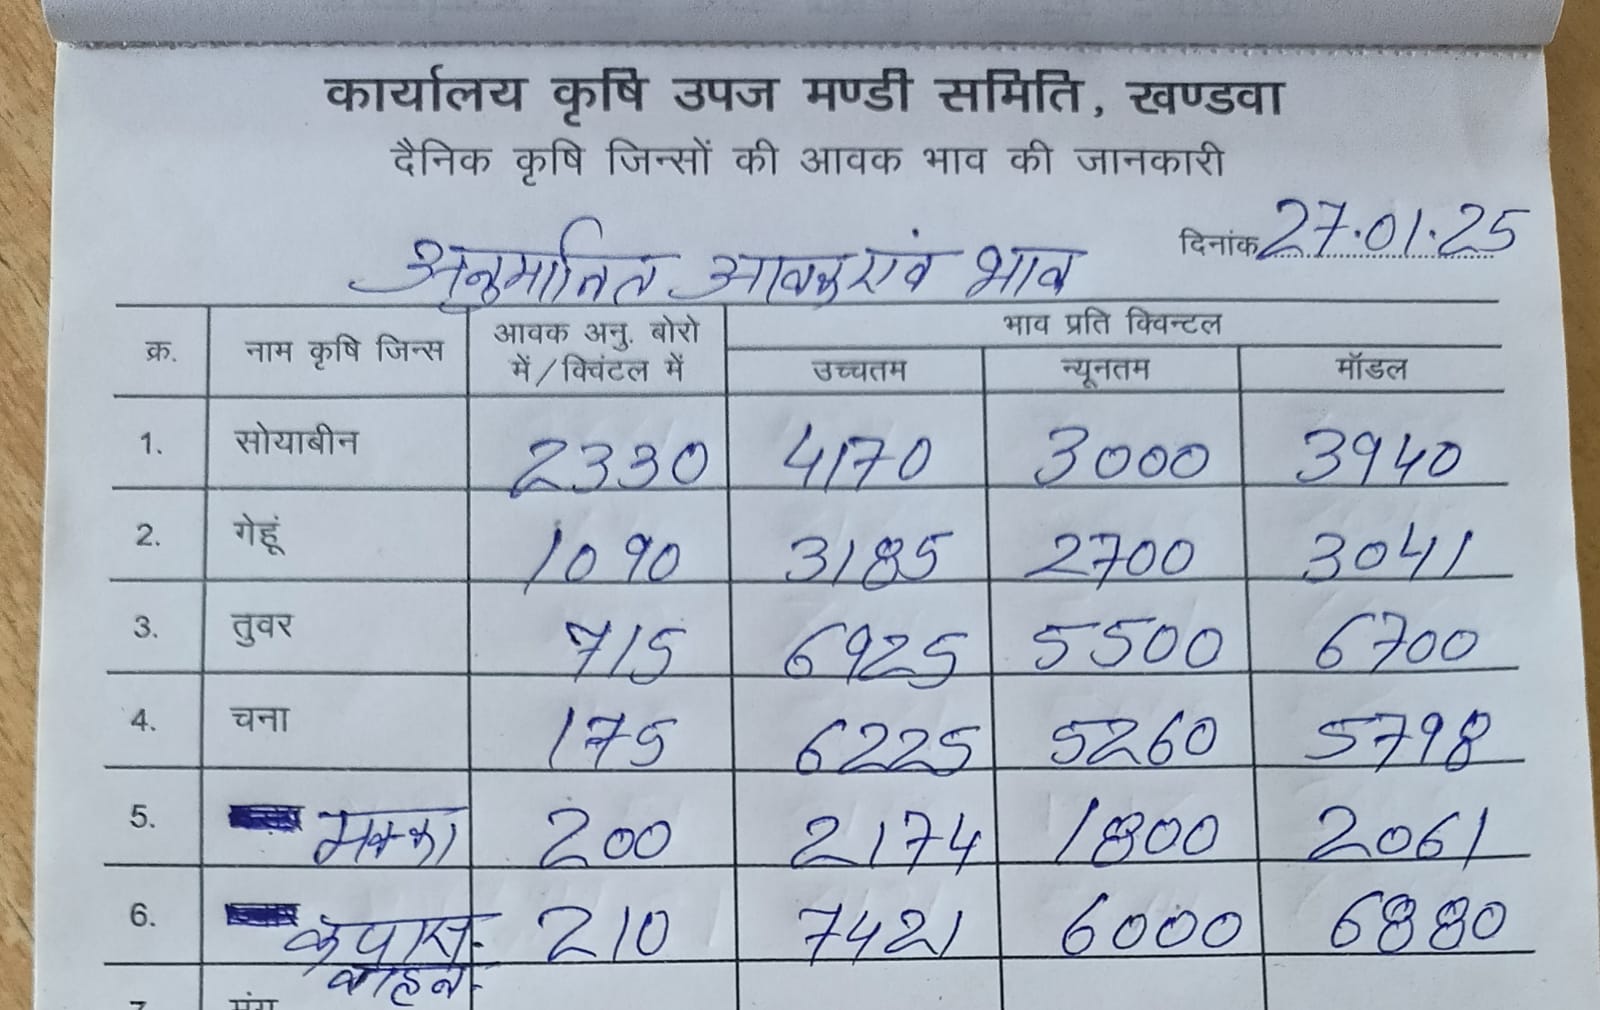 कार्यालय कृषि उपज मण्डी समिति, खण्डवा
दैनिक कृषि जिन्सों की आवक भाव की जानकारी
दिनांक 27.01.25
अनुमानित आवक एवं भाव
क्र. नाम कृषि जिन्स आवक अनु. बोरो में/क्विंटल में भाव प्रति क्विन्टल
उच्चतम न्यूनतम मॉडल
1. सोयाबीन 2330 4170 3000 3940
2. गेहूं 1090 3185 2700 3041
3. तुवर 715 6925 5500 6700
4. चना 175 6225 5260 5798
5. मक्का 200 2174 1800 2061
6. कपास 210 7421 6000 6880
वाहन
7. मूंग